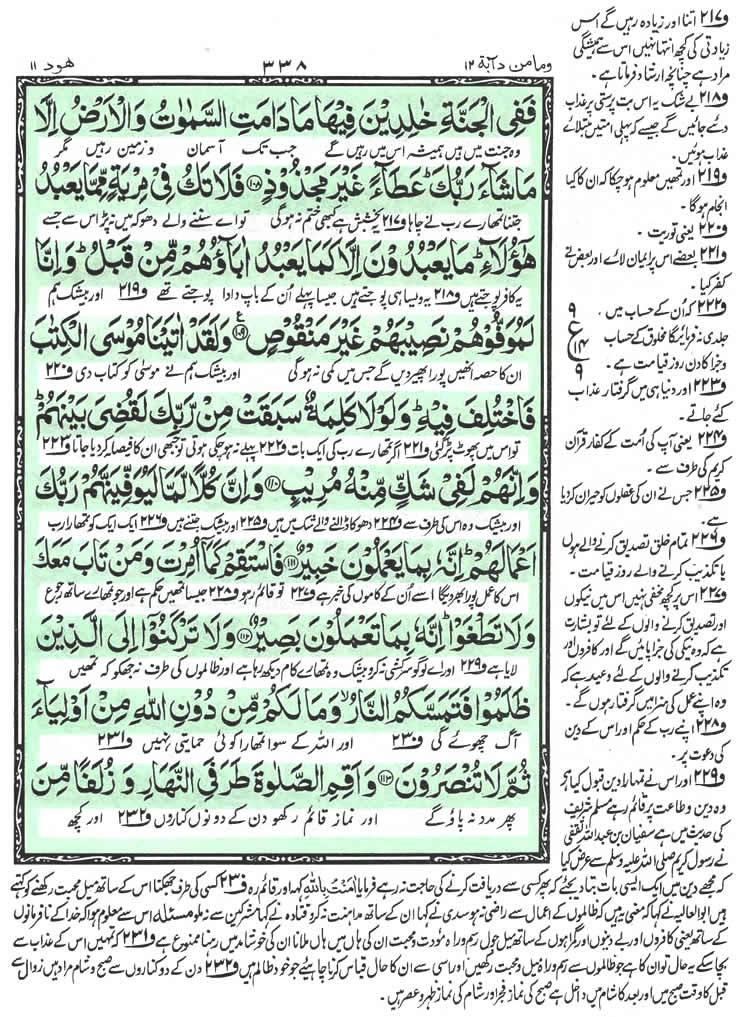 ومامن دآبة ۱۲
۳۳۸
هود ۱۱
فَفِي الْجَنَّةِ خٰلِدِيْنَ فِيْهَا مَا دَامَتِ السَّمٰوٰتُ وَالْاَرْضُ اِلَّا
وہ جنت میں ہیں ہمیشہ اس میں رہیں گے جب تک آسمان و زمین رہیں مگر
مَا شَآءَ رَبُّكَ ؕ عَطَآءً غَيْرَ مَجْذُوْذٍ ﴿۱۰۸﴾ فَلَا تَكُ فِيْ مِرْيَةٍ مِّمَّا يَعْبُدُ
جتنا تمھارے رب نے چاہا و۲۱۷ یہ بخشش ہے کبھی ختم نہ ہوگی تو اے سننے والے دھوکہ میں نہ پڑ اس سے جسے
هٰٓؤُلَآءِ ؕ مَا يَعْبُدُوْنَ اِلَّا كَمَا يَعْبُدُ اٰبَآؤُهُمْ مِّنْ قَبْلُ ؕ وَاِنَّا
یہ کافر پوجتے ہیں و۲۱۸ یہ ویسا ہی پوجتے ہیں جیسا پہلے اُن کے باپ دادا پوجتے تھے و۲۱۹ اور بیشک ہم
لَمُوَفُّوْهُمْ نَصِيْبَهُمْ غَيْرَ مَنْقُوْصٍ ﴿۱۰۹﴾ وَلَقَدْ اٰتَيْنَا مُوْسَى الْكِتٰبَ
ان کا حصہ انھیں پورا پھیر دیں گے جس میں کمی نہ ہوگی اور بیشک ہم نے موسیٰ کو کتاب دی و۲۲۰
فَاخْتُلِفَ فِيْهِ ؕ وَلَوْلَا كَلِمَةٌ سَبَقَتْ مِنْ رَّبِّكَ لَقُضِيَ بَيْنَهُمْ ؕ
تو اس میں پھوٹ پڑ گئی و۲۲۱ اگر تمھارے رب کی ایک بات و۲۲۲ پہلے نہ ہو چکی ہوتی تو جبھی ان کا فیصلہ کر دیا جاتا و۲۲۳
وَاِنَّهُمْ لَفِيْ شَكٍّ مِّنْهُ مُرِيْبٍ ﴿۱۱۰﴾ وَاِنَّ كُلًّا لَّمَّا لَيُوَفِّيَنَّهُمْ رَبُّكَ
اور بیشک وہ اس کی طرف سے و۲۲۴ دھوکا ڈالنے والے شک میں ہیں و۲۲۵ اور بیشک جتنے ہیں و۲۲۶ ایک ایک کو تمھارا رب
اَعْمَالَهُمْ ؕ اِنَّهٗ بِمَا يَعْمَلُوْنَ خَبِيْرٌ ﴿۱۱۱﴾ فَاسْتَقِمْ كَمَآ اُمِرْتَ وَمَنْ تَابَ مَعَكَ
اس کا عمل پورا بھر دیگا اسے اُن کے کاموں کی خبر ہے و۲۲۷ تو قائم رہو و۲۲۸ جیسا تمھیں حکم ہے اور جو تمھارے ساتھ رجوع
وَلَا تَطْغَوْا ؕ اِنَّهٗ بِمَا تَعْمَلُوْنَ بَصِيْرٌ ﴿۱۱۲﴾ وَلَا تَرْكَنُوْٓا اِلَى الَّذِيْنَ
لایا ہے و۲۲۹ اور اے لوگو سرکشی نہ کرو بیشک وہ تمھارے کام دیکھ رہا ہے اور ظالموں کی طرف نہ جھکو کہ تمھیں
ظَلَمُوْا فَتَمَسَّكُمُ النَّارُ ۙ وَمَا لَكُمْ مِّنْ دُوْنِ اللّٰهِ مِنْ اَوْلِيَآءَ
آگ چھوئے گی و۲۳۰ اور اللہ کے سوا تمھارا کوئی حمایتی نہیں و۲۳۱
ثُمَّ لَا تُنْصَرُوْنَ ﴿۱۱۳﴾ وَاَقِمِ الصَّلٰوةَ طَرَفَيِ النَّهَارِ وَزُلَفًا مِّنَ
پھر مدد نہ پاؤ گے اور نماز قائم رکھو دن کے دونوں کناروں و۲۳۲ اور کچھ
و۲۱۷ اتنا اور زیادہ رہیں گے اس
زیادتی کی کچھ انتہا نہیں اس سے ہمیشگی
مراد ہے چنانچہ ارشاد فرماتا ہے۔
و۲۱۸ بے شک یہ اس بت پرستی پر عذاب
دئے جائیں گے جیسے کہ پہلی امتیں مبتلائے
عذاب ہوئیں۔
و۲۱۹ اور تمھیں معلوم ہو چکا کہ ان کا کیا
انجام ہوگا۔
و۲۲۰ یعنی توریت۔
و۲۲۱ بعضے اس پر ایمان لائے اور بعض نے
کفر کیا۔
و۲۲۲ کہ اُن کے حساب میں
جلدی نہ فرمائیگا مخلوق کے حساب
وجزا کا دن روز قیامت ہے۔
۹
ع
۱۴
۹
و۲۲۳ اور دنیا ہی میں گرفتار عذاب
کئے جاتے۔
و۲۲۴ یعنی آپ کی اُمت کے کفار قرآن
کریم کی طرف سے۔
و۲۲۵ جس نے ان کی عقلوں کو حیران کر دیا
ہے۔
و۲۲۶ تمام خلق تصدیق کرنے والے ہوں
یا تکذیب کرنے والے روز قیامت۔
و۲۲۷ اس پر کچھ مخفی نہیں اس میں نیکوں
اور تصدیق کرنے والوں کے لئے تو بشارت
ہے کہ وہ نیکی کی جزا پائیں گے اور کافروں اور
تکذیب کرنے والوں کے لئے وعید ہے کہ
وہ اپنے عمل کی سزا میں گرفتار ہوں گے۔
و۲۲۸ اپنے رب کے حکم اور اس کے دین
کی دعوت پر۔
و۲۲۹ اور اس نے تمہارا دین قبول کیا ہے
وہ دین و طاعت پر قائم رہے مسلم شریف
کی حدیث میں ہے سفیان بن عبداللہ ثقفی
نے رسول کریم صلی اللہ علیہ وسلم سے عرض کیا
کہ مجھے دین میں ایک ایسی بات بتا دیجئے کہ پھر کسی سے دریافت کرنے کی حاجت نہ رہے فرمایا اٰمَنْتُ بِاللّٰہِ کہہ اور قائم رہ و۲۳۰ کسی کی طرف جھکنا اس کے ساتھ میل محبت رکھنے کو کہتے
ہیں ابوالعالیہ نے کہا کہ معنی یہ ہیں کہ ظالموں کے اعمال سے راضی نہ ہو سدی نے کہا ان کے ساتھ مداہنت نہ کرو قتادہ نے کہا مشرکین سے نہ ملو مسئلہ اس سے معلوم ہوا کہ خدا کے نافرمانوں
کے ساتھ یعنی کافروں اور بے دینوں اور گمراہوں کے ساتھ میل جول رسم و راہ مؤدت ومحبت ان کی ہاں میں ہاں ملانا ان کی خوشامد میں رہنا ممنوع ہے و۲۳۱ کہ تمہیں اس کے عذاب سے
بچا سکے یہ حال تو ان کا ہے جو ظالموں سے رسم و راہ میل و محبت رکھیں اور اسی سے ان کا حال قیاس کرنا چاہیئے جو خود ظالم ہیں و۲۳۲ دن کے دو کناروں سے صبح و شام مراد ہیں زوال سے
قبل کا وقت صبح میں اور بعد کا شام میں داخل ہے صبح کی نماز فجر اور شام کی نماز ظہر و عصر ہیں۔